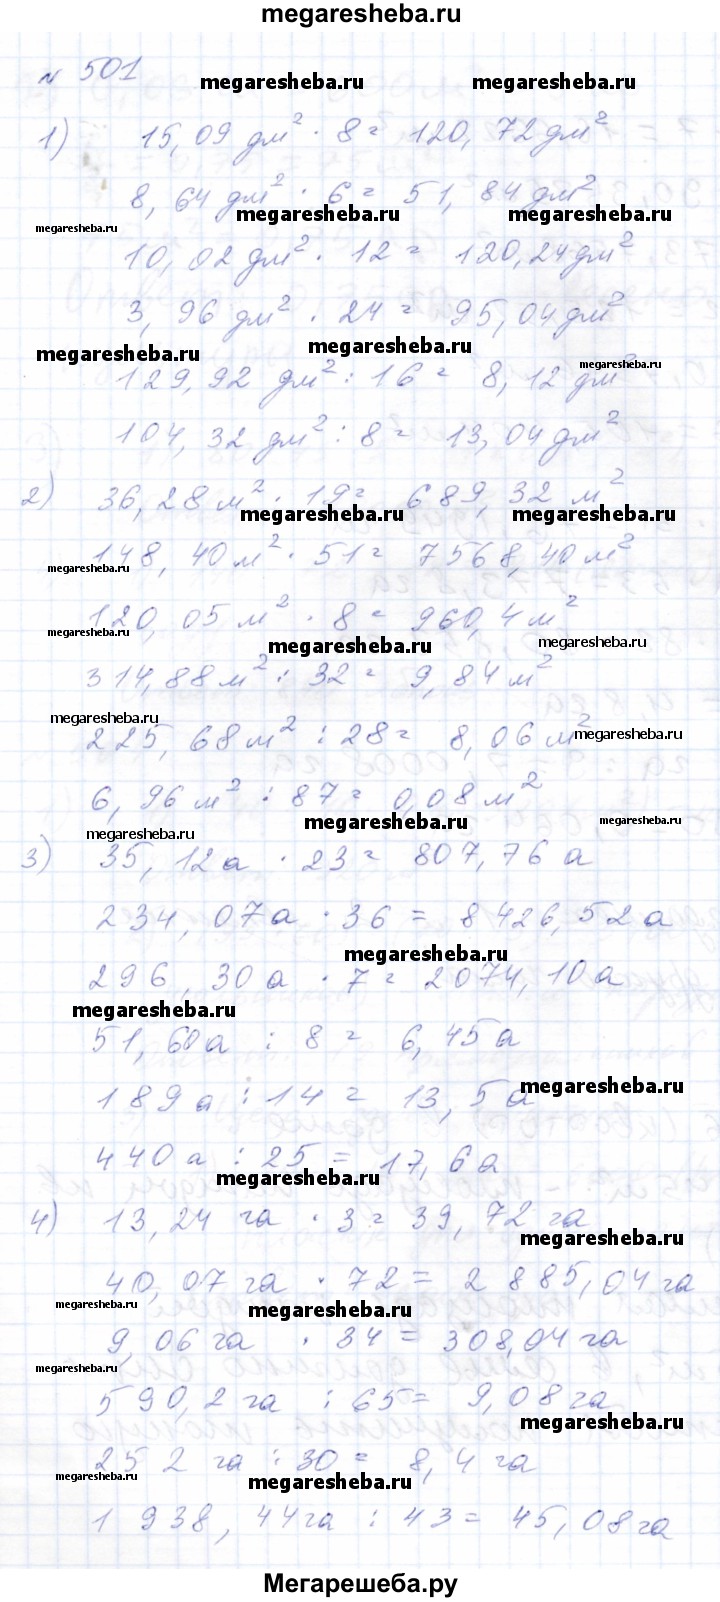 megaresheba.ru
№ 501
megaresheba.ru megaresheba.ru
1) 15,09 дм² · 8 = 120,72 дм²
8,64 дм² · 6 = 51,84 дм²
megaresheba.ru megaresheba.ru megaresheba.ru
10,02 дм² · 12 = 120,24 дм²
3,96 дм² · 24 = 95,04 дм²
megaresheba.ru megaresheba.ru megaresheba.ru
129,92 дм² : 16 = 8,12 дм²
104,32 дм² : 8 = 13,04 дм²
2) 36,28 м² · 19 = 689,32 м²
megaresheba.ru megaresheba.ru
148,40 м² · 51 = 7568,40 м²
megaresheba.ru
120,05 м² · 8 = 960,4 м²
megaresheba.ru megaresheba.ru megaresheba.ru
314,88 м² : 32 = 9,84 м²
megaresheba.ru
225,68 м² : 28 = 8,06 м²
megaresheba.ru
6,96 м² : 87 = 0,08 м²
megaresheba.ru megaresheba.ru megaresheba.ru
3) 35,12 а · 23 = 807,76 а
234,07 а · 36 = 8426,52 а
megaresheba.ru
296,30 а · 7 = 2074,10 а
megaresheba.ru
51,60 а : 8 = 6,45 а
megaresheba.ru
189 а : 14 = 13,5 а
440 а : 25 = 17,6 а
megaresheba.ru
4) 13,24 га · 3 = 39,72 га
megaresheba.ru
40,07 га · 72 = 2 885,04 га
megaresheba.ru megaresheba.ru
9,06 га · 34 = 308,04 га
megaresheba.ru
590,2 га : 65 = 9,08 га
megaresheba.ru
252 га : 30 = 8,4 га
megaresheba.ru megaresheba.ru
1 938,44 га : 43 = 45,08 га
Мегарешеба.ру